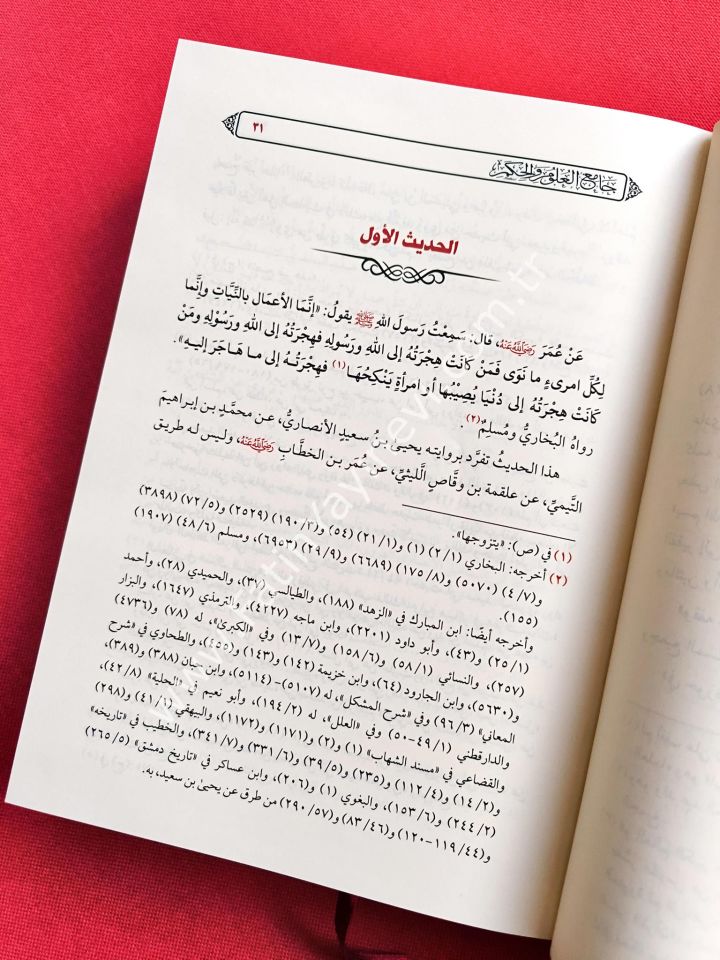 ٣١
جامع العلوم والحكم
الحديث الأول
عَنْ عُمَرَ رَضِيَ اللَّهُ عَنْهُ، قال: سَمِعْتُ رَسولَ اللهِ ﷺ يقولُ: «إنَّمَا الأعمَال بالنِّيَّاتِ وإنَّما
لِكُلِّ امرىءٍ ما نَوَى فَمَنْ كَانَتْ هِجْرَتُهُ إلى اللهِ ورَسُولِهِ فهِجْرَتُهُ إلى اللهِ ورَسُوْلِهِ ومَنْ
كَانَتْ هِجْرَتُهُ إلى دُنْيَا يُصِيْبُها أو امرأةٍ يَنْكِحُهَا(١) فهِجْرَتُهُ إلى ما هَاجَرَ إليهِ».
رواهُ البُخاريُّ ومُسلِمٌ(٢).
هذا الحديثُ تفرَّد بروايته يحيىٰ بنُ سعيدٍ الأنصاريُّ، عن محمَّدِ بن إبراهيمَ
التَّيميِّ، عن علقمة بن وقَّاصٍ الَّليثيِّ، عن عُمَر بن الخطَّابِ رَضِيَ اللَّهُ عَنْهُ، وليس له طريق
(١) في (ص): «يتزوجها».
(٢) أخرجه: البخاري (٢/١) (١) و(٢١/١) (٥٤) و(١٩٠/٣) (٢٥٢٩) و(٧٢/٥) (٣٨٩٨)
و(٤/٧) (٥٠٧٠) و(١٧٥/٨) (٦٦٨٩) و(٢٩/٩) (٦٩٥٣)، ومسلم (٤٨/٦) (١٩٠٧)
(١٥٥).
وأخرجه أيضًا: ابن المبارك في «الزهد» (١٨٨)، والطيالسي (٣٧)، والحميدي (٢٨)، وأحمد
(٢٥/١) و(٤٣)، وأبو داود (٢٢٠١)، وابن ماجه (٤٢٢٧)، والترمذي (١٦٤٧)، والبزار
(٢٥٧)، والنسائي (٥٨/١) و(١٥٨/٦) و(١٣/٧) وفي «الكبرىٰ»، له (٧٨) و(٤٧٣٦)
و(٥٦٣٠)، وابن الجارود (٦٤)، وابن خزيمة (١٤٢) و(١٤٣) و(٤٥٥)، والطحاوي في «شرح
المعاني» (٩٦/٣) وفي «شرح المشكل»، له (٥١٠٧-٥١١٤)، وابن حبان (٣٨٨) و(٣٨٩)،
والدارقطني (٤٩/١-٥٠) وفي «العلل»، له (١٩٤/٢)، وأبو نعيم في «الحلية» (٤٢/٨)،
والقضاعي في «مسند الشهاب» (١) و(٢) و(١١٧١) و(١١٧٢)، والبيهقي (٤١/١) و(٢٩٨)
و(١٤/٢) و(١١٢/٤) و(٢٣٥) و(٣٩/٥) و(٣٣١/٦) و(٣٤١/٧)، والخطيب في «تاريخه»
(٢٤٤/٢) و(١٥٣/٦)، والبغوي (١) و(٢٠٦)، وابن عساكر في «تاريخ دمشق» (٢٦٥/٥)
و(١١٩/٤٤-١٢٠) و(٨٣/٤٦) و(٢٩٠/٥٧) من طرق عن يحيىٰ بن سعيد، به.